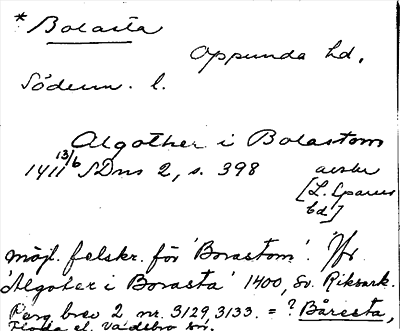 * Bolasta
Oppunda hd,
Söderm. l.
Algother i Bolastom
1411 13/6 SDns 2, s. 398 avskr
[L. Sparres
bd]
möjl. felskr. för 'Borastom'. Jfr
'Algotær i Borasta' 1400, Sv. Riksark.
Perg. brev 2 nr. 3129, 3133. = ? Båresta,
Floda el. Vadsbro sn.